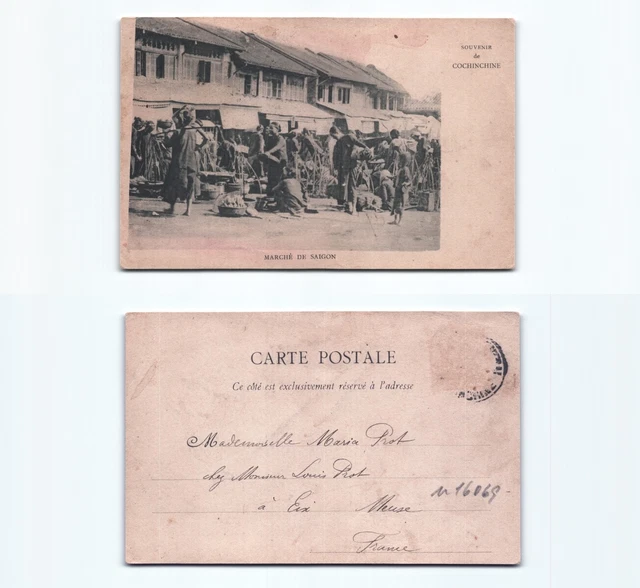 SOUVENIR
de
COCHINCHINE
MARCHÉ DE SAIGON
CARTE POSTALE
Ce côté est exclusivement réservé à l'adresse
Mademoiselle Maria Prot
chez Monsieur Louis Prot
à Eix Meuse
France
16069